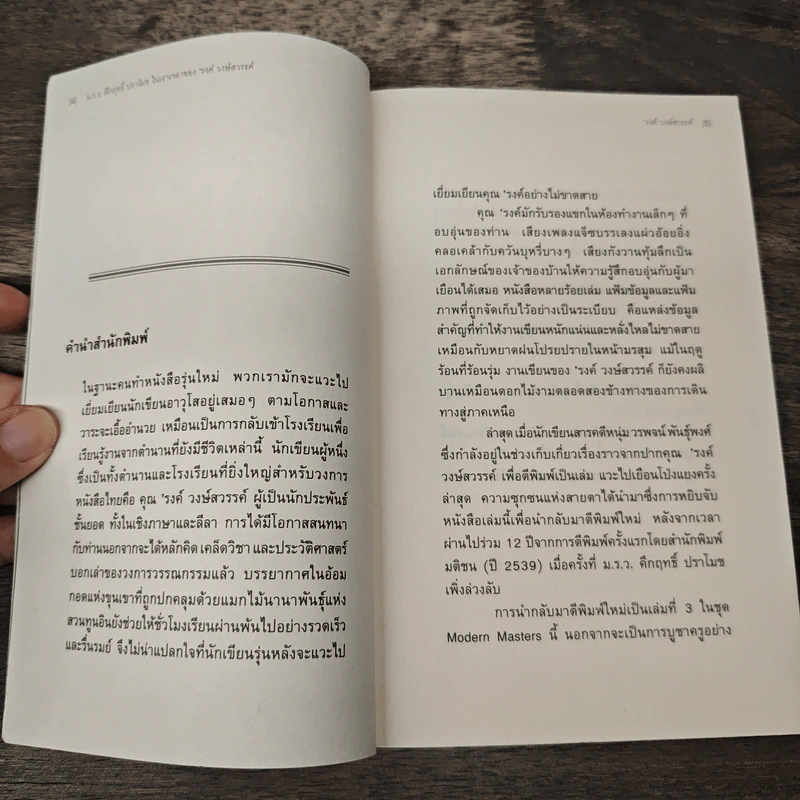 [4] ม.ร.ว. คึกฤทธิ์ ปราโมช ในเงาเวลาของ 'รงค์ วงษ์สวรรค์
คำนำสำนักพิมพ์
ในฐานะคนทำหนังสือรุ่นใหม่ พวกเรามักจะแวะไป
เยี่ยมเยียนนักเขียนอาวุโสอยู่เสมอๆ ตามโอกาสและ
วาระจะเอื้ออำนวย เหมือนเป็นการกลับเข้าโรงเรียนเพื่อ
เรียนรู้งานจากตำนานที่ยังมีชีวิตเหล่านี้ นักเขียนผู้หนึ่ง
ซึ่งเป็นทั้งตำนานและโรงเรียนที่ยิ่งใหญ่สำหรับวงการ
หนังสือไทยคือ คุณ 'รงค์ วงษ์สวรรค์ ผู้เป็นนักประพันธ์
ชั้นยอด ทั้งในเชิงภาษาและลีลา การได้มีโอกาสสนทนา
กับท่านนอกจากจะได้หลักคิด เคล็ดวิชา และประวัติศาสตร์
บอกเล่าของวงการวรรณกรรมแล้ว บรรยากาศในอ้อม
กอดแห่งขุนเขาที่ถูกปกคลุมด้วยแมกไม้นานาพันธุ์แห่ง
สวนทูนอินยังช่วยให้ชั่วโมงเรียนผ่านพ้นไปอย่างรวดเร็ว
และรื่นรมย์ จึงไม่น่าแปลกใจที่นักเขียนรุ่นหลังจะแวะไป
'รงค์ วงษ์สวรรค์ [5]
เยี่ยมเยียนคุณ 'รงค์อย่างไม่ขาดสาย
คุณ 'รงค์มักรับรองแขกในห้องทำงานเล็กๆ ที่
อบอุ่นของท่าน เสียงเพลงแจ๊ซบรรเลงแผ่วอ้อยอิ่ง
คลอเคล้ากับควันบุหรี่บางๆ เสียงกังวานทุ้มลึกเป็น
เอกลักษณ์ของเจ้าของบ้านให้ความรู้สึกอบอุ่นกับผู้มา
เยือนได้เสมอ หนังสือหลายร้อยเล่ม แฟ้มข้อมูลและแฟ้ม
ภาพที่ถูกจัดเก็บไว้อย่างเป็นระเบียบ คือแหล่งข้อมูล
สำคัญที่ทำให้งานเขียนหนักแน่นและหลั่งไหลไม่ขาดสาย
เหมือนกับหยาดฝนโปรยปรายในหน้ามรสุม แม้ในฤดู
ร้อนที่ร้อนรุ่ม งานเขียนของ 'รงค์ วงษ์สวรรค์ ก็ยังคงผลิ
บานเหมือนดอกไม้งามตลอดสองข้างทางของการเดิน
ทางสู่ภาคเหนือ
ล่าสุด เมื่อนักเขียนสารคดีหนุ่ม วรพจน์ พันธุ์พงศ์
ซึ่งกำลังอยู่ในช่วงเก็บเกี่ยวเรื่องราวจากปากคุณ 'รงค์
วงษ์สวรรค์ เพื่อตีพิมพ์เป็นเล่ม แวะไปเยือนโป่งแยงครั้ง
ล่าสุด ความซุกซนแห่งสายตาได้นำมาซึ่งการหยิบจับ
หนังสือเล่มนี้เพื่อนำกลับมาตีพิมพ์ใหม่ หลังจากเวลา
ผ่านไปร่วม 12 ปีจากการตีพิมพ์ครั้งแรกโดยสำนักพิมพ์
มติชน (ปี 2539) เมื่อครั้งที่ ม.ร.ว. คึกฤทธิ์ ปราโมช
เพิ่งล่วงลับ
การนำกลับมาตีพิมพ์ใหม่เป็นเล่มที่ 3 ในชุด
Modern Masters นี้ นอกจากจะเป็นการบูชาครูอย่าง